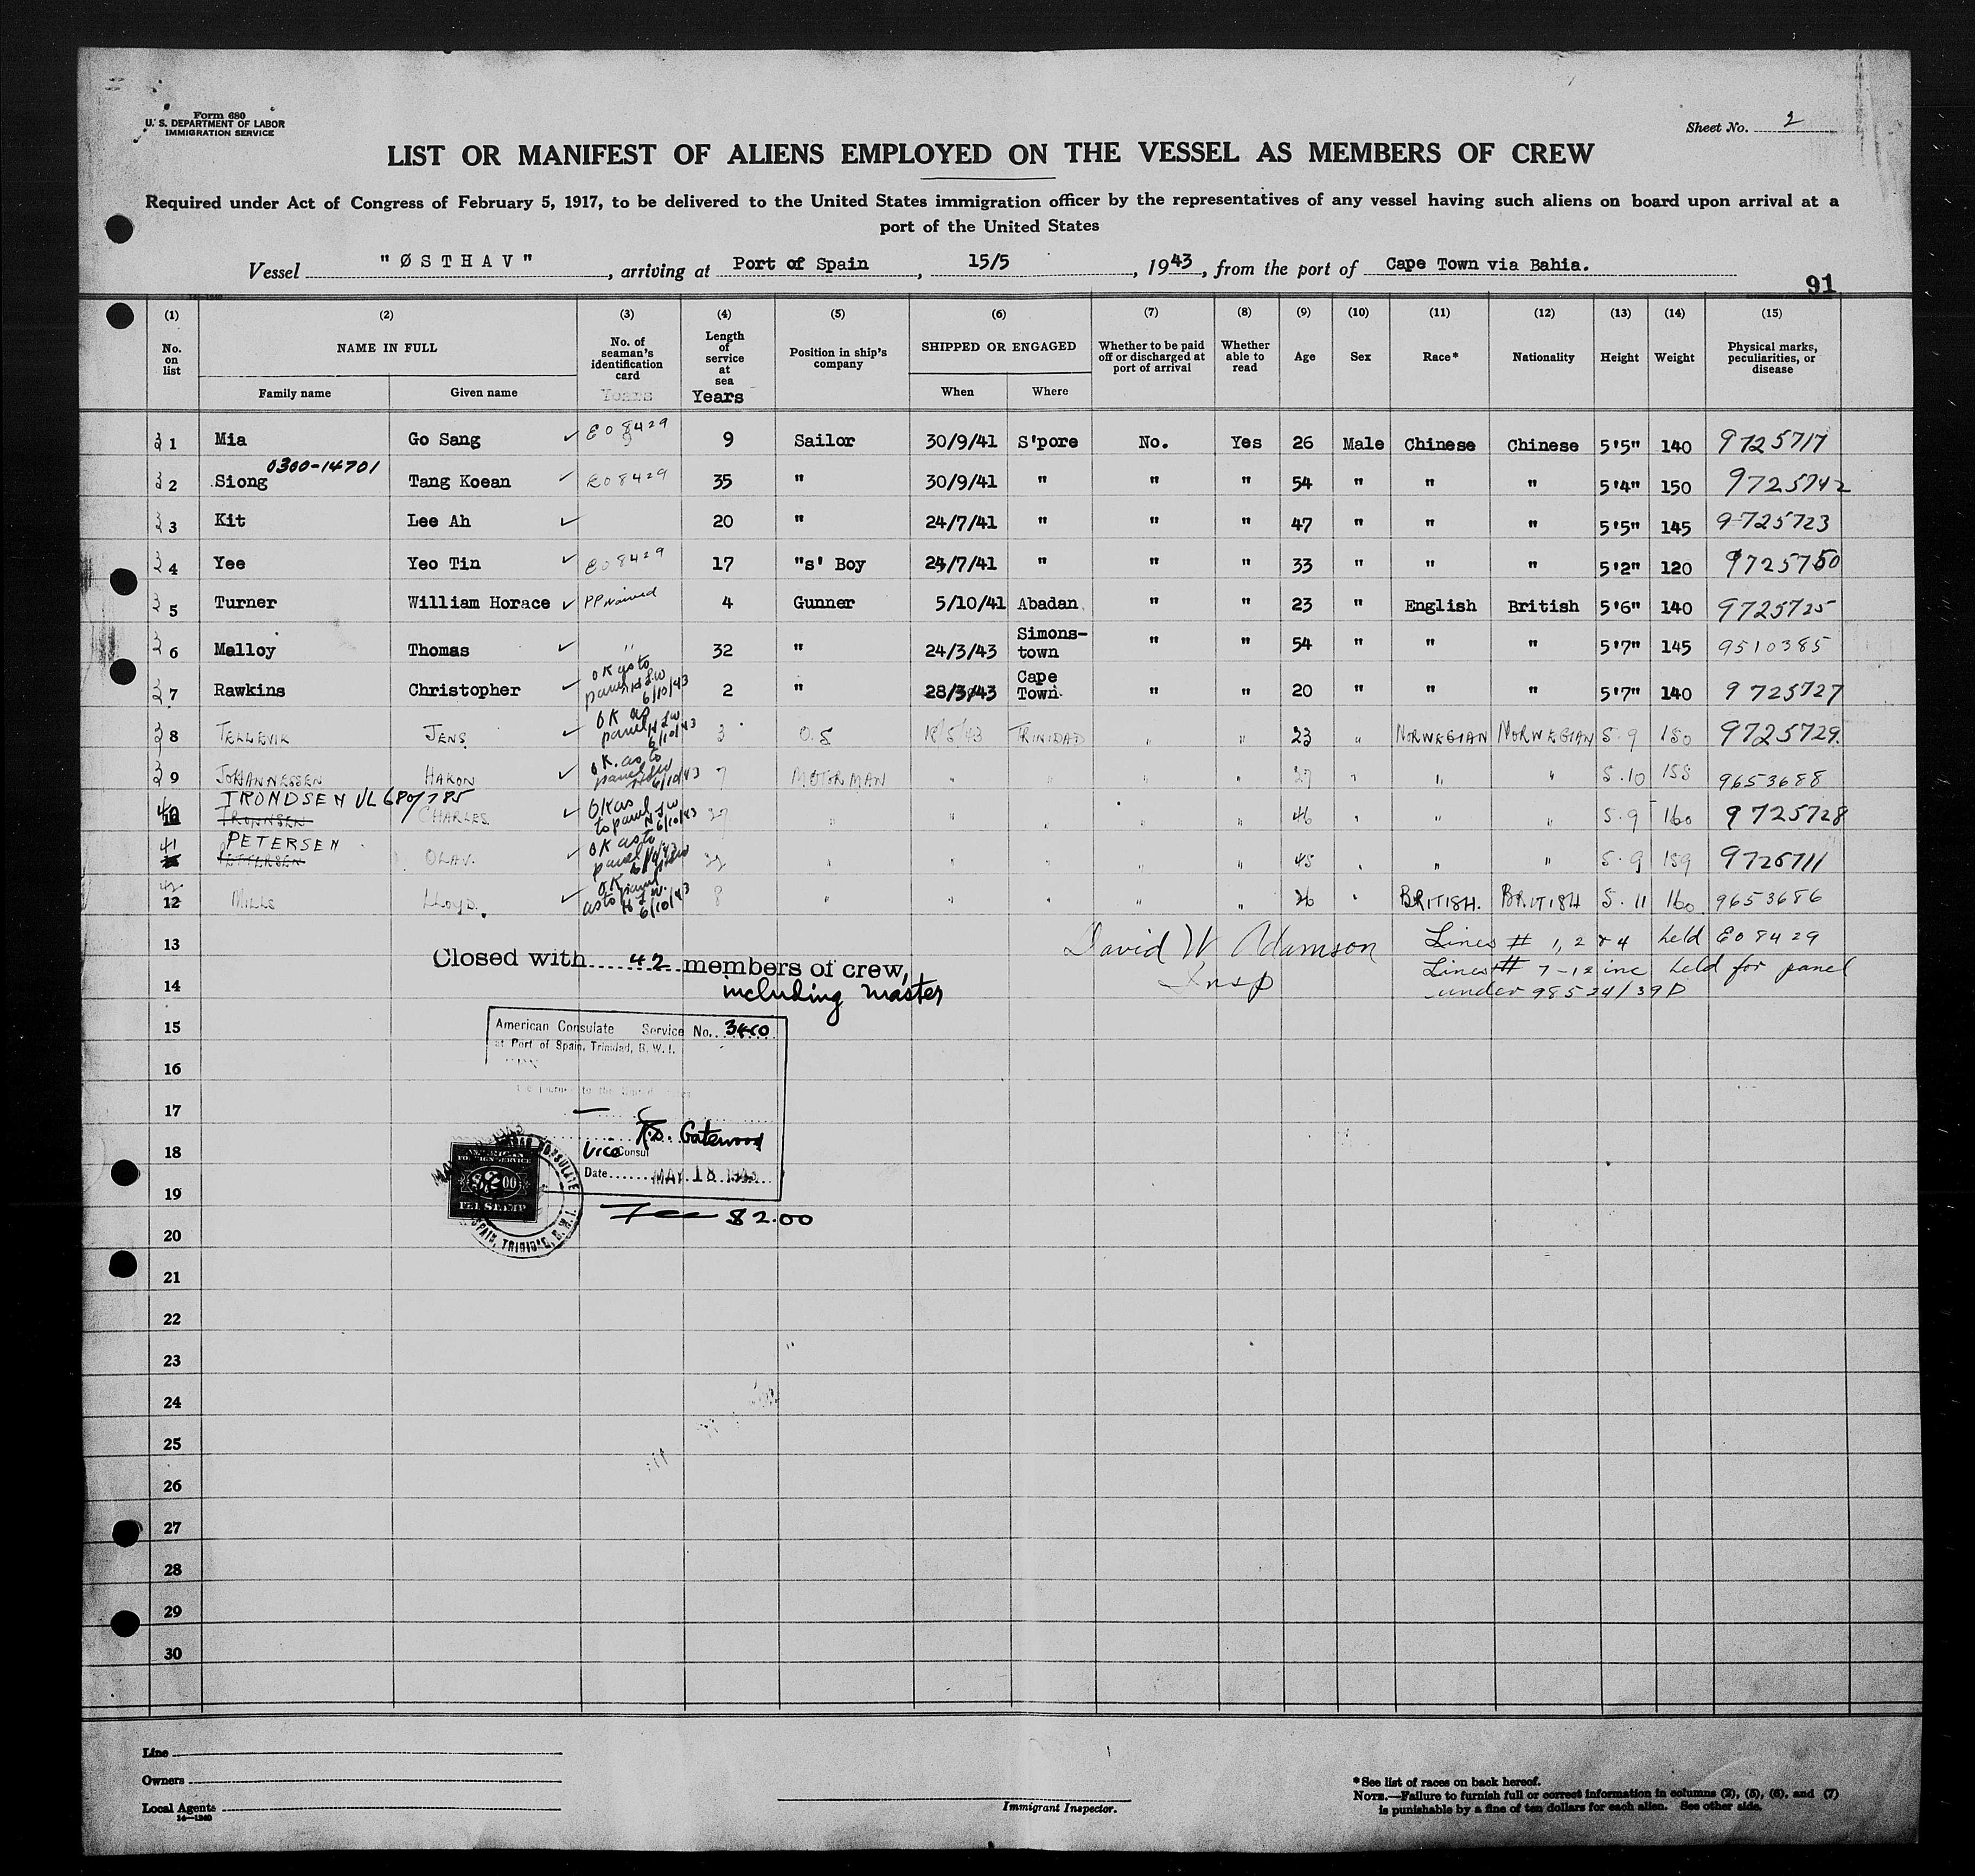 Form 680
U. S. DEPARTMENT OF LABOR
IMMIGRATION SERVICE
Sheet No. 2
LIST OR MANIFEST OF ALIENS EMPLOYED ON THE VESSEL AS MEMBERS OF CREW
Required under Act of Congress of February 5, 1917, to be delivered to the United States immigration officer by the representatives of any vessel having such aliens on board upon arrival at a
port of the United States
Vessel "ØSTHAV", arriving at Port of Spain, 15/5, 1943, from the port of Cape Town via Bahia.
91
(1) (2) (3) (4) (5) (6) (7) (8) (9) (10) (11) (12) (13) (14) (15)
No. on list NAME IN FULL Family name Given name No. of seaman's identification card Length of service at sea Years Position in ship's company SHIPPED OR ENGAGED When Where Whether to be paid off or discharged at port of arrival Whether able to read Age Sex Race* Nationality Height Weight Physical marks, peculiarities, or disease
31 Mia Go Sang ✓ E08429 9 Sailor 30/9/41 S'pore No. Yes 26 Male Chinese Chinese 5'5" 140 9725717
0300-14701
32 Siong Tang Koean ✓ E08429 35 " 30/9/41 " " " 54 " " " 5'4" 150 9725742
33 Kit Lee Ah ✓ 20 " 24/7/41 " " " 47 " " " 5'5" 145 9725723
34 Yee Yeo Tin ✓ E08429 17 "s' Boy 24/7/41 " " " 33 " " " 5'2" 120 9725750
35 Turner William Horace ✓ PP waived 4 Gunner 5/10/41 Abadan " " 23 " English British 5'6" 140 9725725
36 Malloy Thomas ✓ " 32 " 24/3/43 Simons-town " " 54 " " " 5'7" 145 9510385
37 Rawkins Christopher ✓ OK as to panel HLW 6/10/43 2 " 28/3/43 Cape Town " " 20 " " " 5'7" 140 9725727
38 TELLEVIK JENS ✓ OK as panel HLW 6/10/43 3 O.S 18/5/43 TRINIDAD " " 23 " NORWEGIAN NORWEGIAN 5.9 150 9725729
39 JOHANNESSEN HAKON ✓ OK. as to panel HLW 6/10/43 7 MOTORMAN " " " " 27 " " " 5.10 158 9653688
TRONDSEN VL 680/785
40 10 TRONNSEN CHARLES ✓ OK as to panel HLW 6/10/43 " " " " " 46 " " " 5.9 160 9725728
PETERSEN
41 PETTERSEN OLAV. ✓ OK as to panel " " " " " 45 " " " 5.9 159 9726711
42 12 MILLS LLOYD. ✓ OK as to panel HLW. 6/10/43 8 " " " " " 26 " BRITISH. BRITISH 5.11 160 9653686
13 David W Adamson Lines # 1, 2 & 4 held E08429
Closed with 42 members of crew,
Lines # 7-12 inc held for panel
14 including master Insp under 98524/39D
15
American Consulate Service No. 3460
at Port of Spain, Trinidad, B. W. I.
16
17
R.D. Gatewood
18 Vice Consul
Date MAY 18 1943
AMERICAN FOREIGN SERVICE
$2.00
FEE STAMP
CONSULATE
SPAIN, TRINIDAD, B. W. I.
19
Fee $2.00
20
21
22
23
24
25
26
27
28
29
30
Line
Owners
Local Agents
14—1240
Immigrant Inspector.
*See list of races on back hereof.
NOTE.—Failure to furnish full or correct information in columns (2), (5), (6), and (7)
is punishable by a fine of ten dollars for each alien. See other side.